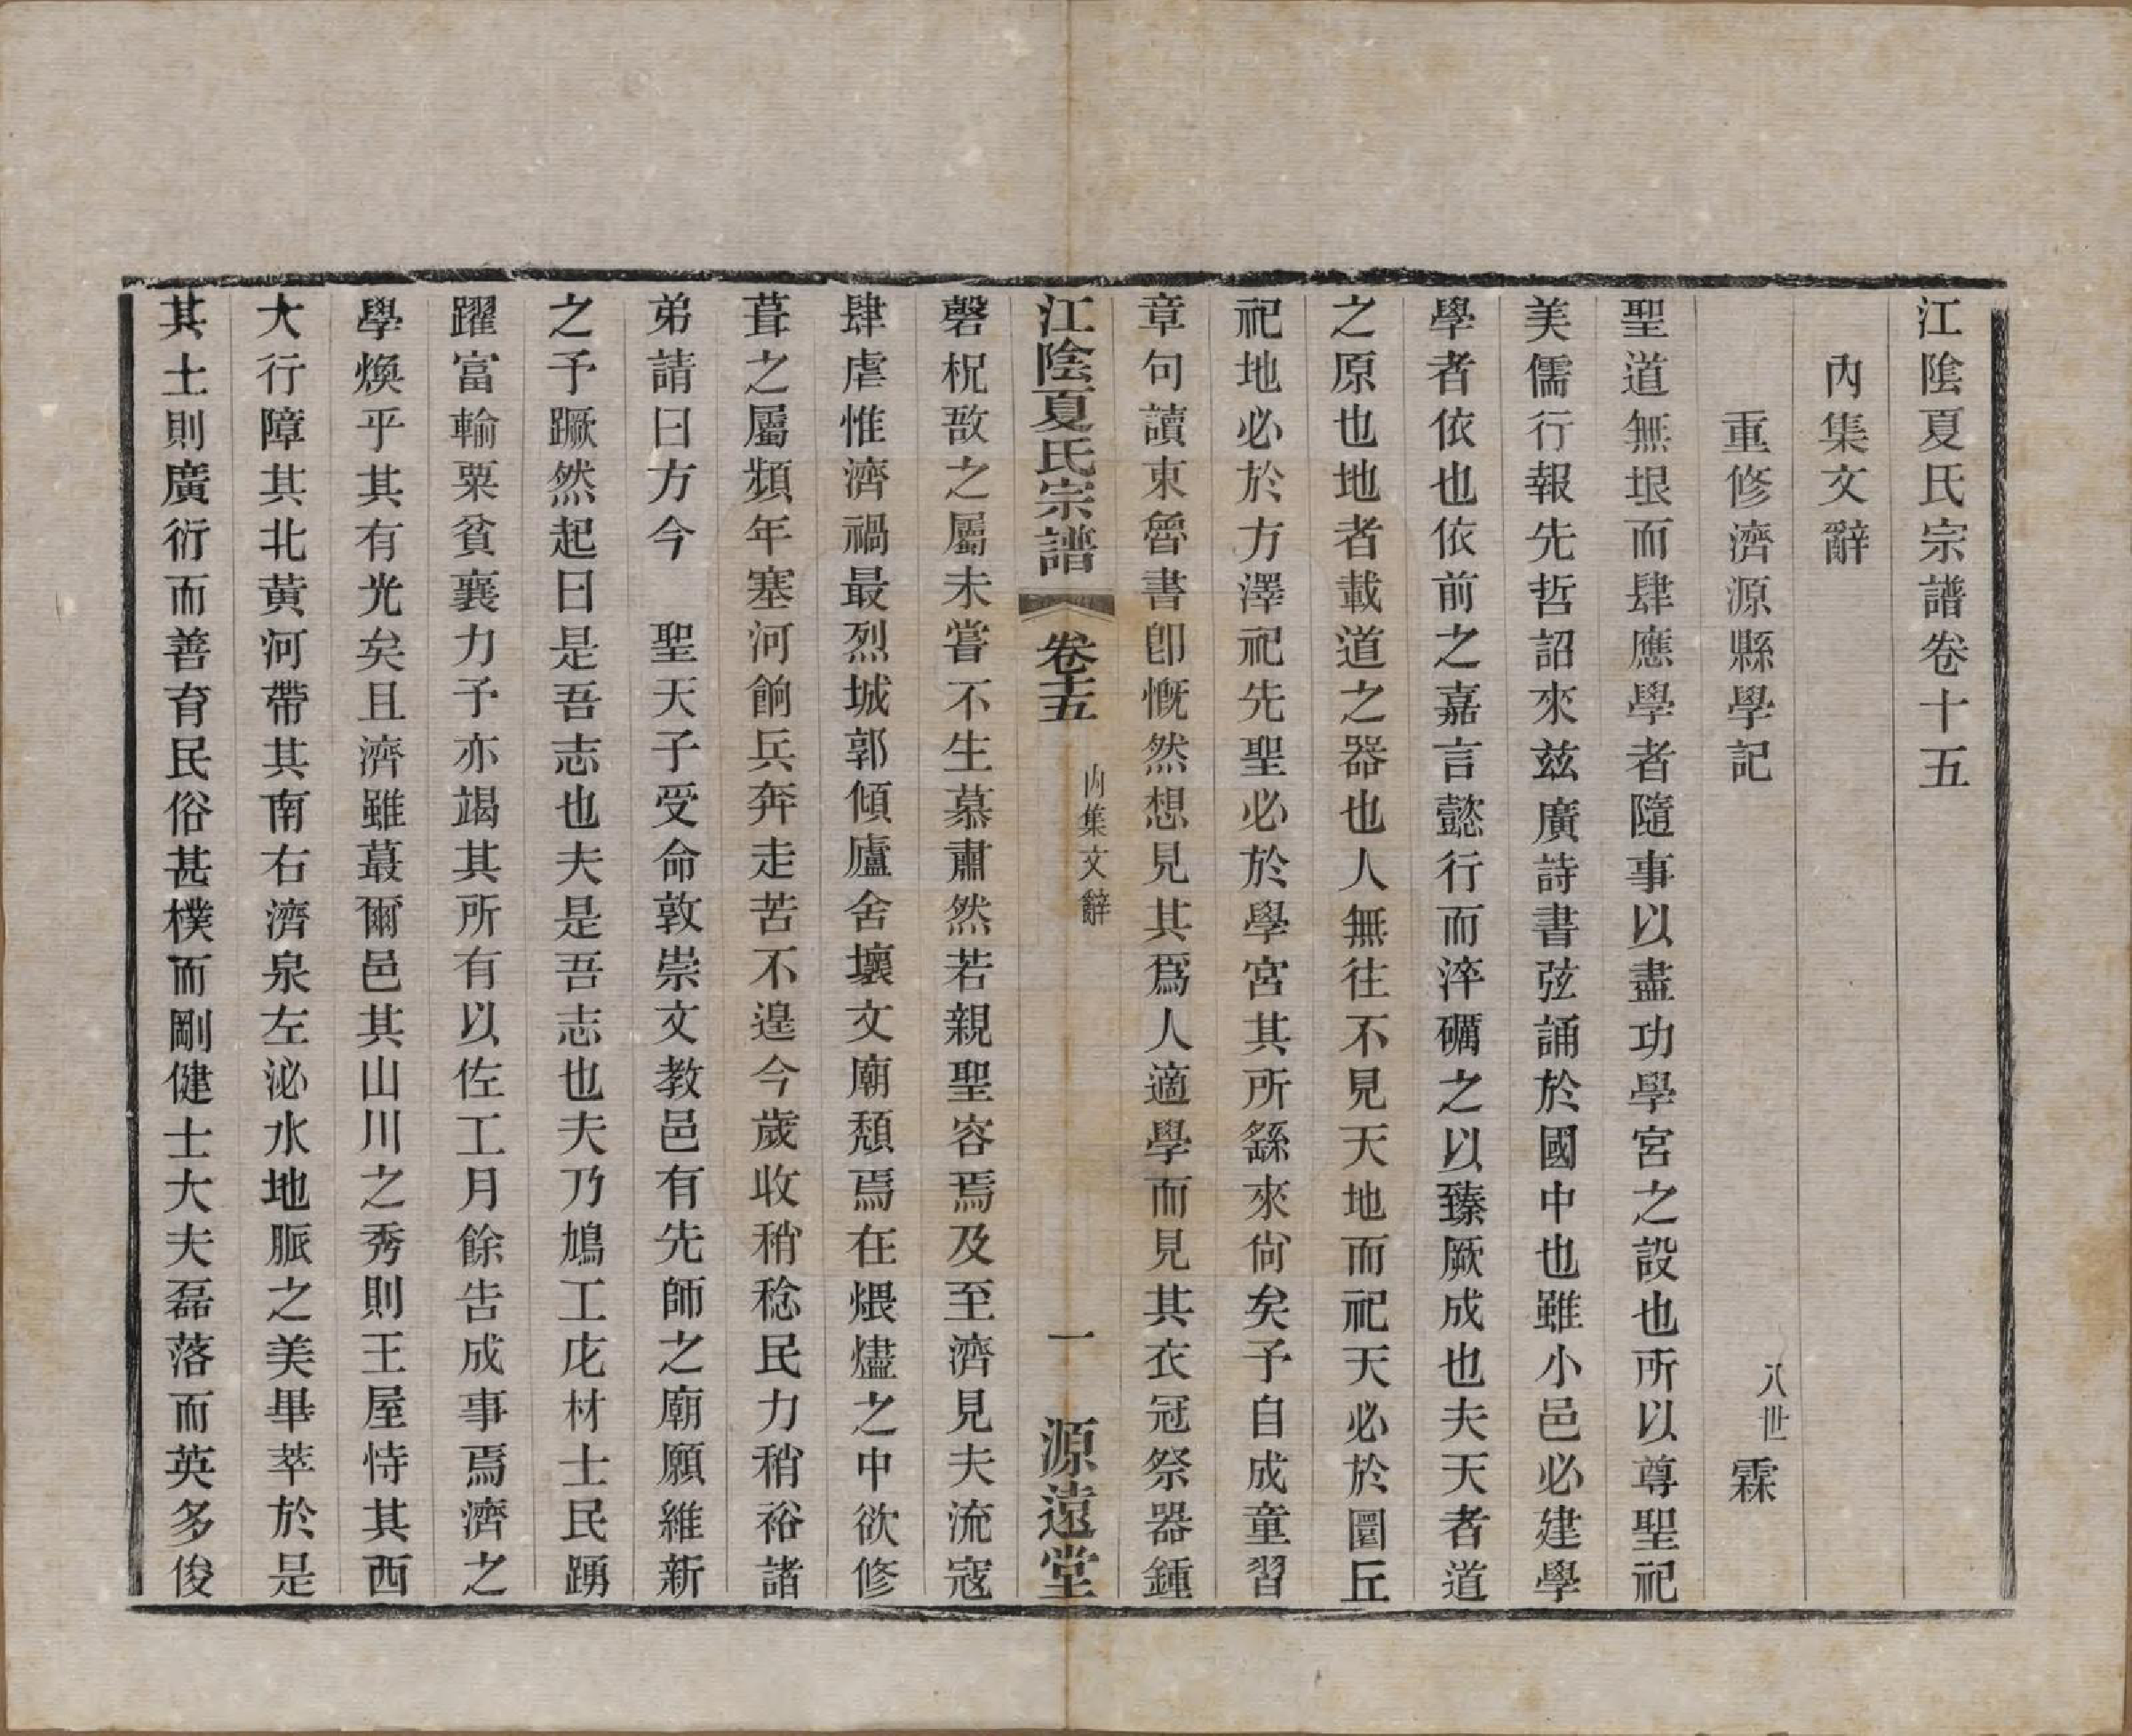 江陰夏氏宗譜卷十五
內集文辭
重修濟源縣學記
八世 霖
聖道無垠而肆應學者隨事以盡功學宮之設也所以尊聖祀
美儒行報先哲詔來茲廣詩書弦誦於國中也雖小邑必建學
學者依也依前之嘉言懿行而淬礪之以臻厥成也夫天者道
之原也地者載道之器也人無往不見天地而祀天必於圜丘
祀地必於方澤祀先聖必於學宮其所繇來尙矣予自成童習
章句讀東魯書卽慨然想見其爲人適學而見其衣冠祭器鍾
江陰夏氏宗譜 卷十五 內集文辭 一 源遠堂
磬柷敔之屬未嘗不生慕肅然若親聖容焉及至濟見夫流寇
肆虐惟濟禍最烈城郭傾廬舍壞文廟頹焉在煨燼之中欲修
葺之屬頻年塞河餉兵奔走苦不遑今歲收稍稔民力稍裕諸
弟請曰方今 聖天子受命敦崇文教邑有先師之廟願維新
之予蹶然起曰是吾志也夫是吾志也夫乃鳩工庀材士民踴
躍富輸粟貧襄力予亦竭其所有以佐工月餘告成事焉濟之
學煥乎其有光矣且濟雖蕞爾邑其山川之秀則王屋恃其西
大行障其北黃河帶其南右濟泉左泌水地脈之美畢萃於是
其土則廣衍而善育民俗甚樸而剛健士大夫磊落而英多俊